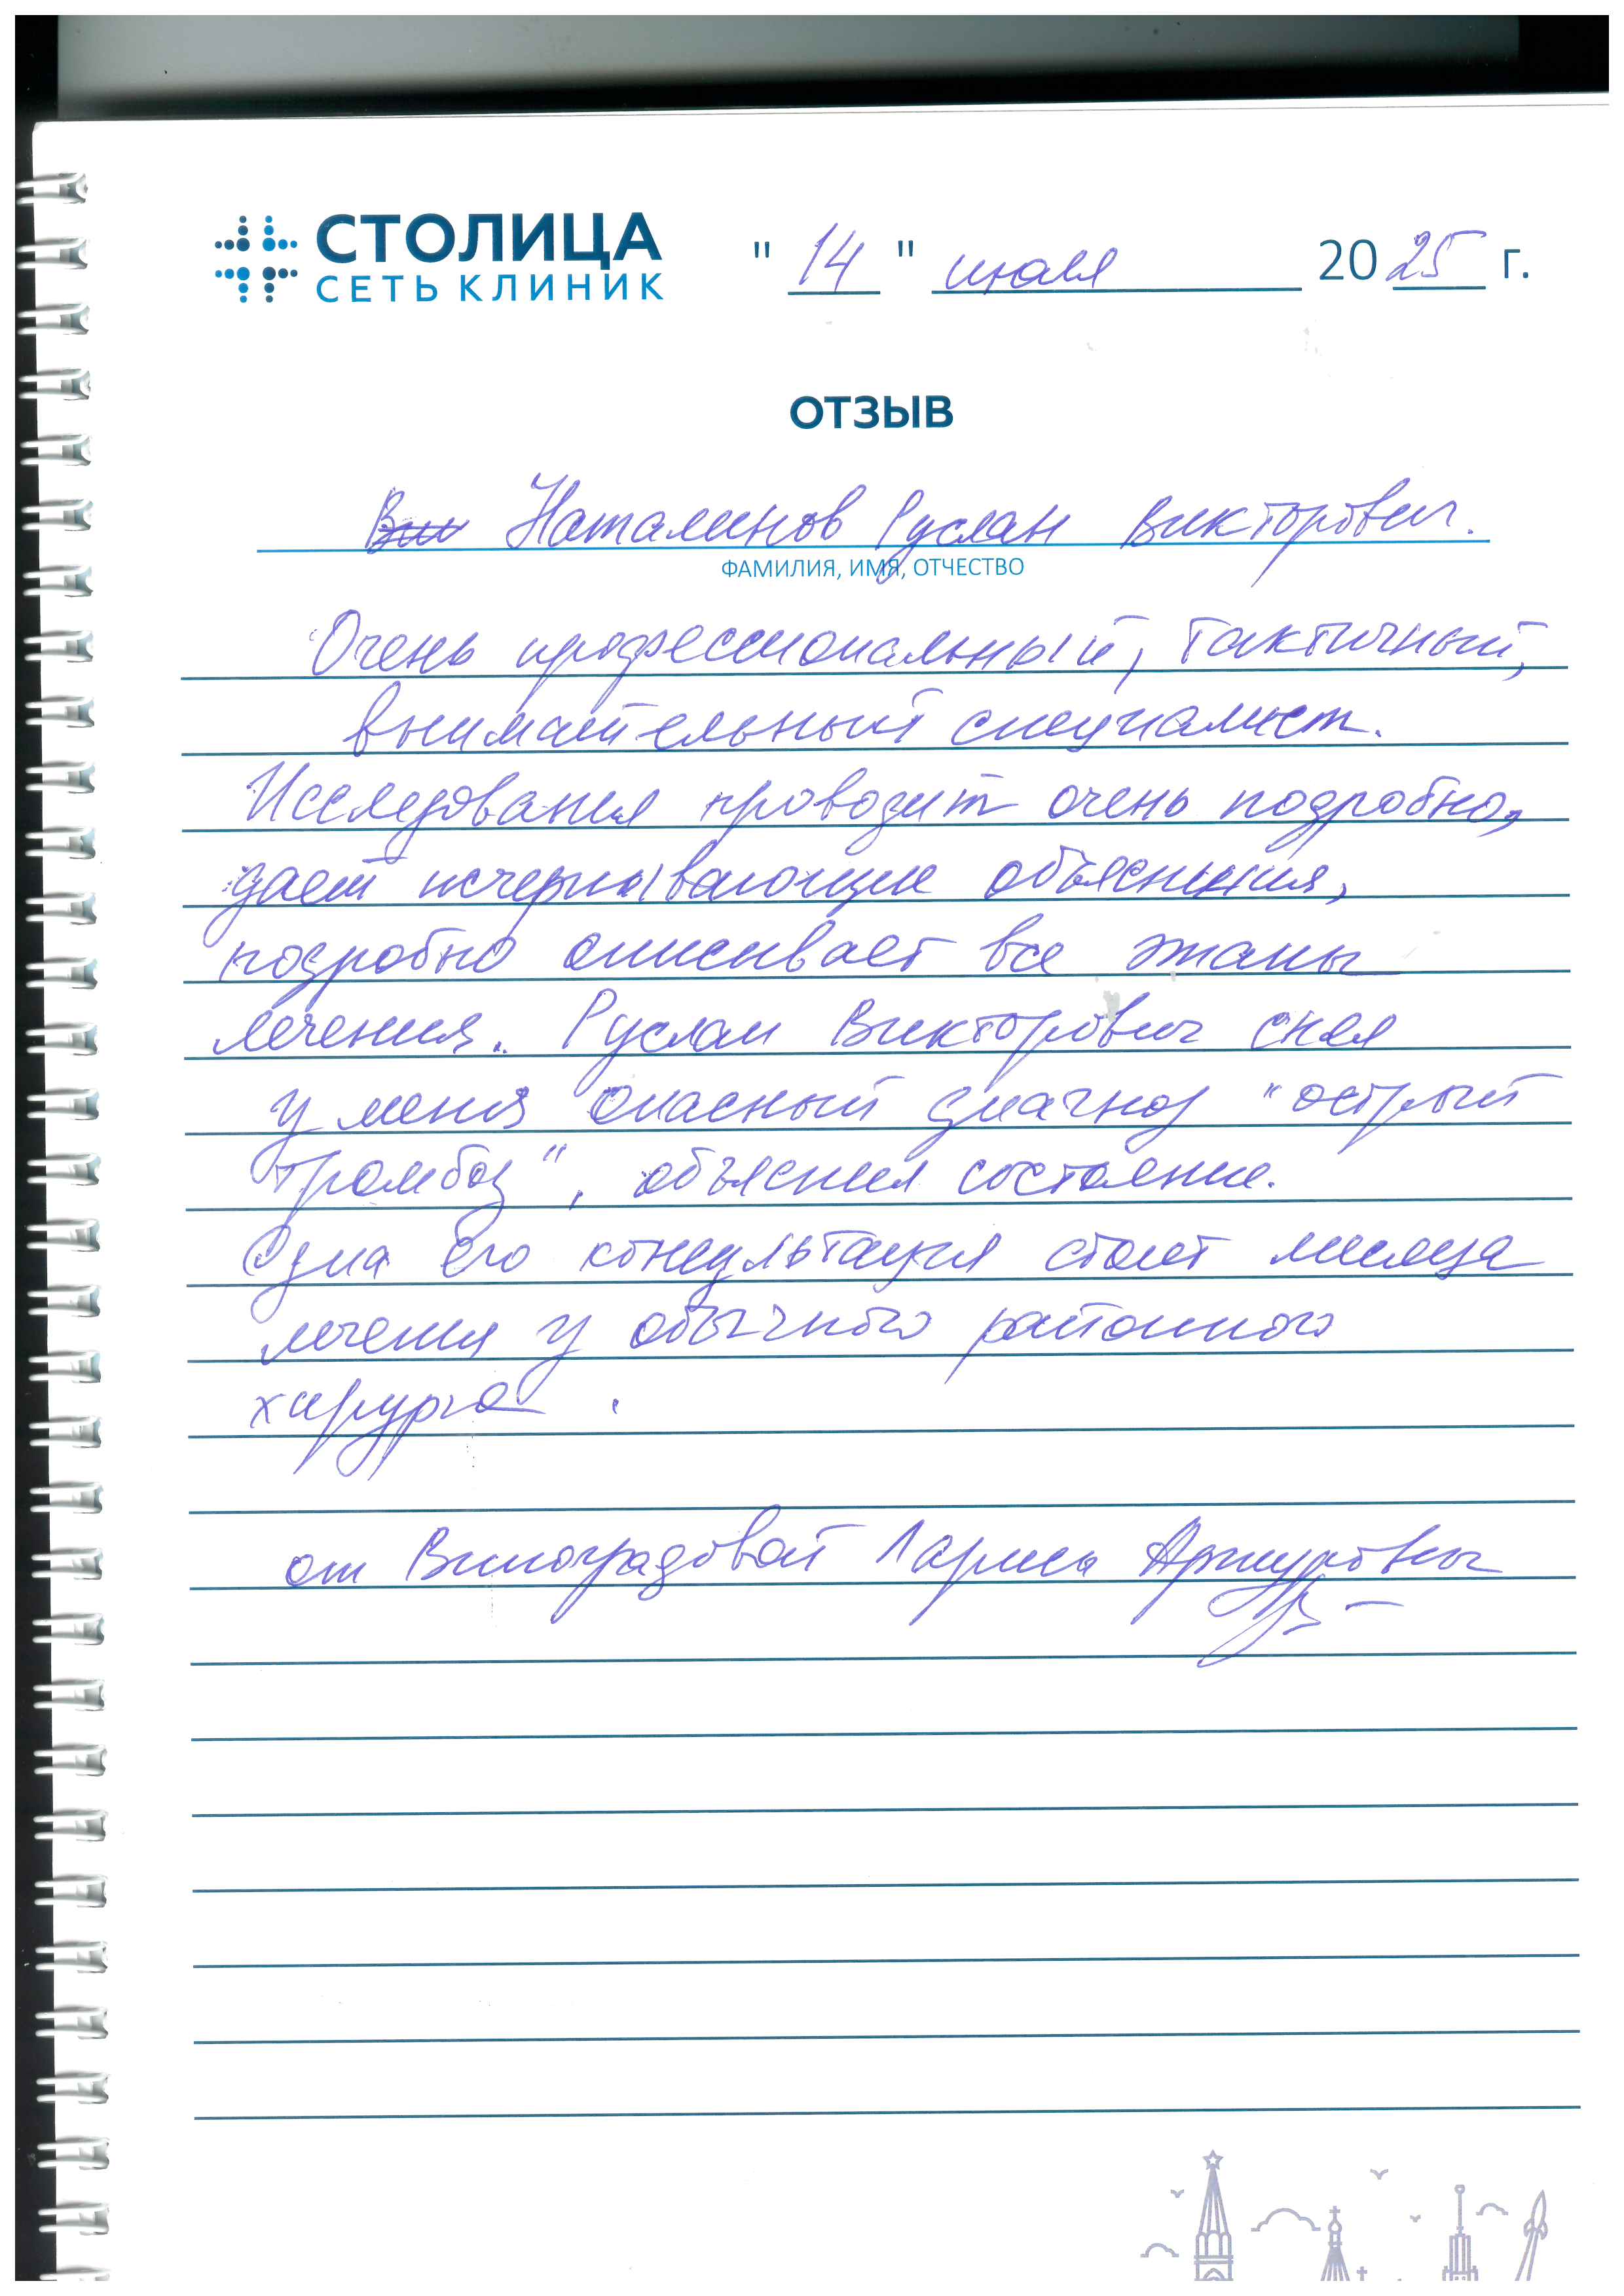 СТОЛИЦА
СЕТЬ КЛИНИК
" 14 " июля 2025 г.
ОТЗЫВ
Наталинов Руслан Викторович.
ФАМИЛИЯ, ИМЯ, ОТЧЕСТВО
Очень профессиональный, тактичный,
внимательный специалист.
Исследования проводит очень подробно,
дает исчерпывающие объяснения,
подробно описывает все этапы
лечения. Руслан Викторович снял
у меня опасный диагноз "острый
тромбоз", объяснил состояние.
Одна его консультация стоит месяца
лечения у обычного районного
хирурга.
от Виноградовой Ларисы Артуровны